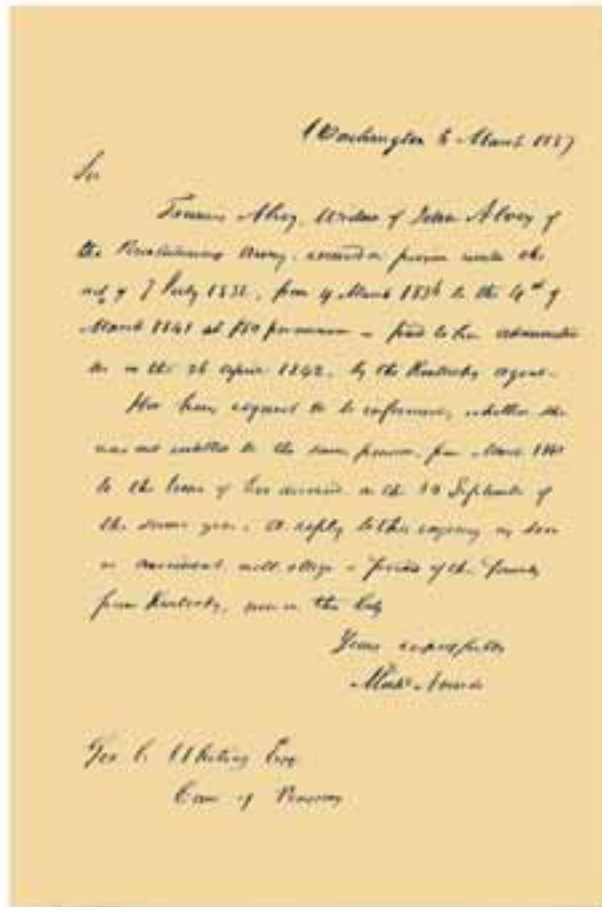 Washington 6 March 1857
Sir
Frances Alvey, Widow of John Alvey of
the Revolutionary Army, received a pension under the
act of 7 July 1838, from 4 March 1836 to the 4th of
March 1841 at $80 per annum - paid to her
on the 26 April 1842, by the Kentucky agent.
Her heirs request to be informed, whether she
was not entitled to the same pension, from March 1841
to the time of her on the 10 September of
the same year. A reply to this as soon
as convenient will oblige a friend of the family
from Kentucky, now in the City
Yours respectfully
Geo C. Whiting Esq
Com of Pensions